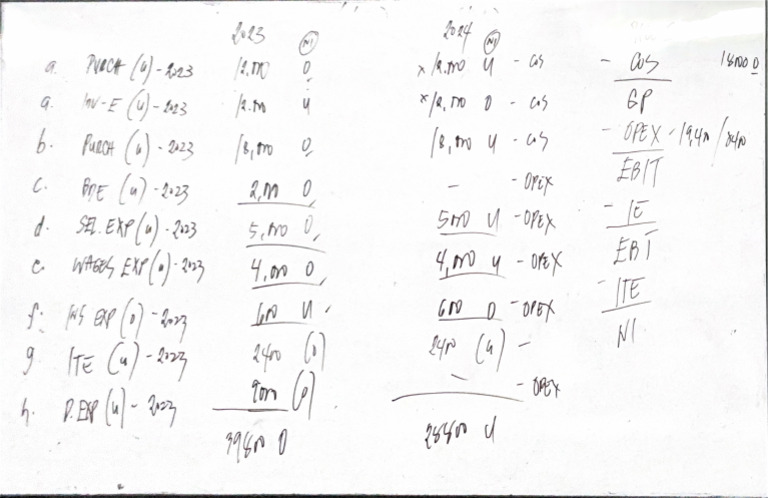 2023 2024
NI NI
a. PURCH (u) - 2023 12,000 O x 12,000 U - COS - COS 18000 O
a. INV-E (u) - 2023 12,000 U x 12,000 O - COS GP
b. PURCH (u) - 2023 18,000 O 18,000 U - COS - OPEX - 19,400 / 8400
c. BDE (u) - 2023 2,000 O - - OPEX EBIT
d. SEL. EXP (u) - 2023 5,000 O 5000 U - OPEX - IE
e. WAGES EXP (u) - 2023 4,000 O 4,000 U - OPEX EBT
f. INS EXP (o) - 2023 600 U 600 O - OPEX - ITE
g. ITE (u) - 2023 2400 (O) 2400 (U) - NI
h. D. EXP (u) - 2023 9000 (O) - - OPEX
39800 O 28800 U